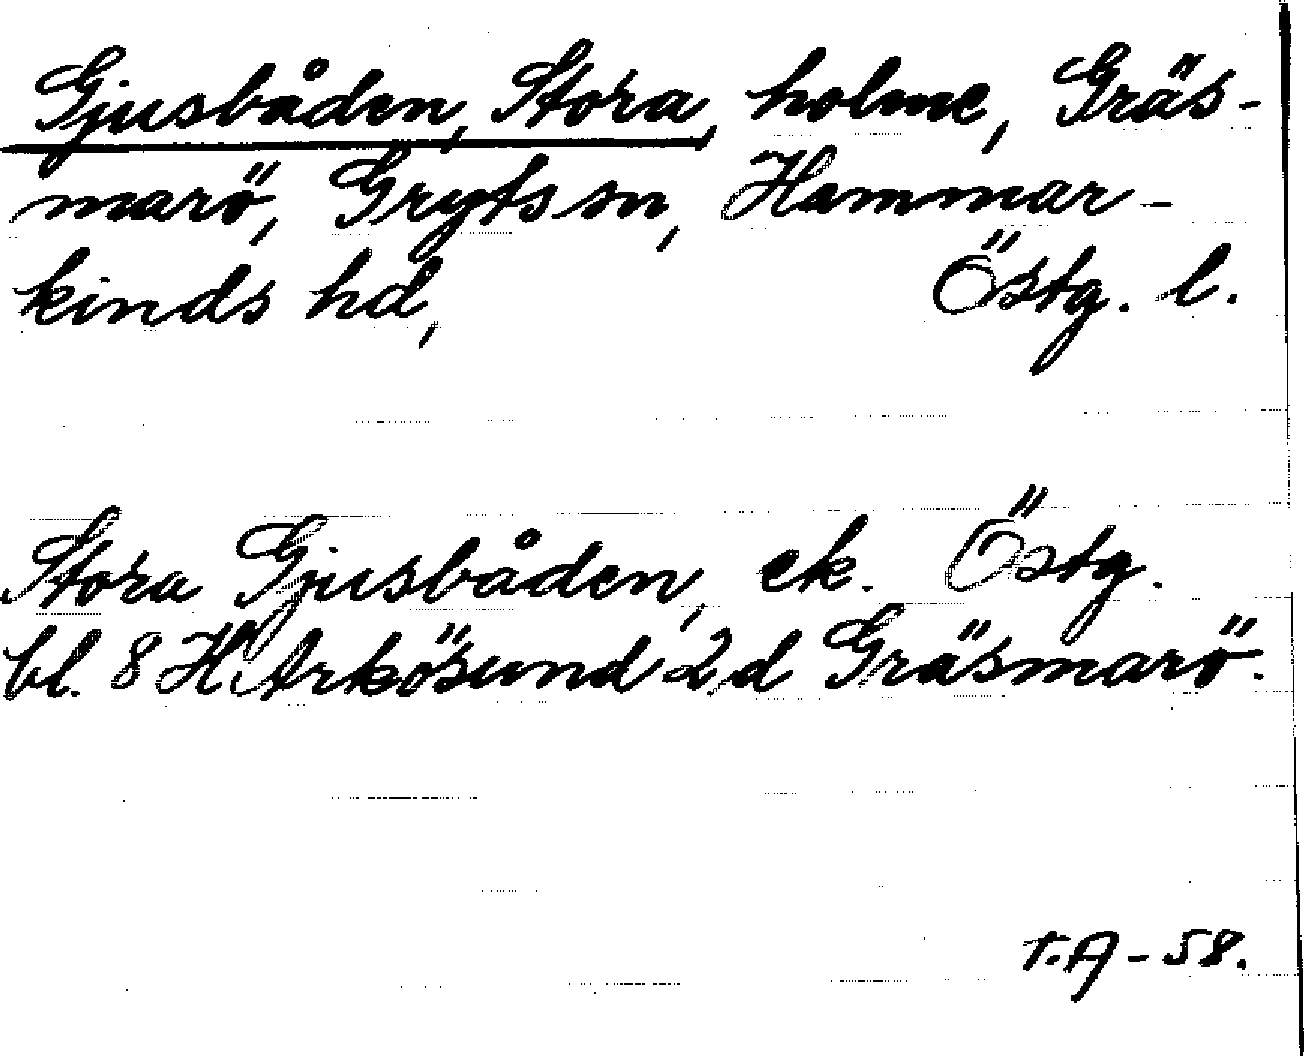 Gjusbåden, Stora, holme, Gräs-
marö, Gryts sn, Hammar-
kinds hd, Östg. l.
Stora Gjusbåden, ek. Östg.
bl. 8 H Arkösund 2 d Gräsmarö.
T.A - 58.